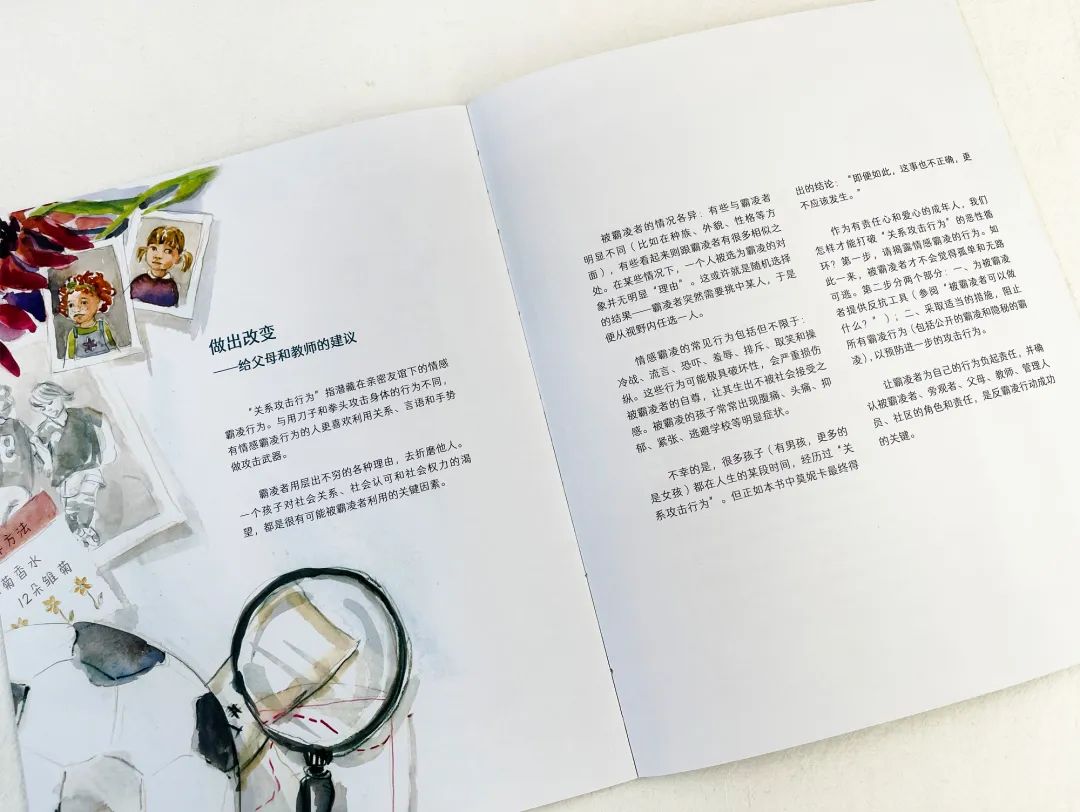 做出改变
——给父母和教师的建议
“关系攻击行为”指潜藏在亲密友谊下的情感
霸凌行为。与用刀子和拳头攻击身体的行为不同，
有情感霸凌行为的人更喜欢利用关系、言语和手势
做攻击武器。
霸凌者用层出不穷的各种理由，去折磨他人。
一个孩子对社会关系、社会认可和社会权力的渴
望，都是很有可能被霸凌者利用的关键因素。
方法
菊香水
12朵雏菊
被霸凌者的情况各异：有些与霸凌者
明显不同（比如在种族、外貌、性格等方
面），有些看起来则跟霸凌者有很多相似之
处。在某些情况下，一个人被选为霸凌的对
象并无明显“理由”。这或许就是随机选择
的结果——霸凌者突然需要挑中某人，于是
便从视野内任选一人。
情感霸凌的常见行为包括但不限于：
冷战、流言、恐吓、羞辱、排斥、取笑和操
纵。这些行为可能极具破坏性，会严重损伤
被霸凌者的自尊，让其生出不被社会接受之
感。被霸凌的孩子常常出现腹痛、头痛、抑
郁、紧张、逃避学校等明显症状。
不幸的是，很多孩子（有男孩，更多的
是女孩）都在人生的某段时间，经历过“关
系攻击行为”。但正如本书中莫妮卡最终得
出的结论：“即便如此，这事也不正确，更
不应该发生。”
作为有责任心和爱心的成年人，我们
怎样才能打破“关系攻击行为”的恶性循
环？第一步，请揭露情感霸凌的行为。如
此一来，被霸凌者才不会觉得孤单和无路
可逃。第二步分两个部分：一、为被霸凌
者提供反抗工具（参阅“被霸凌者可以做
什么？”）；二、采取适当的措施，阻止
所有霸凌行为（包括公开的霸凌和隐秘的霸
凌），以预防进一步的攻击行为。
让霸凌者为自己的行为负起责任，并确
认被霸凌者、旁观者、父母、教师、管理人
员、社区的角色和责任，是反霸凌行动成功
的关键。